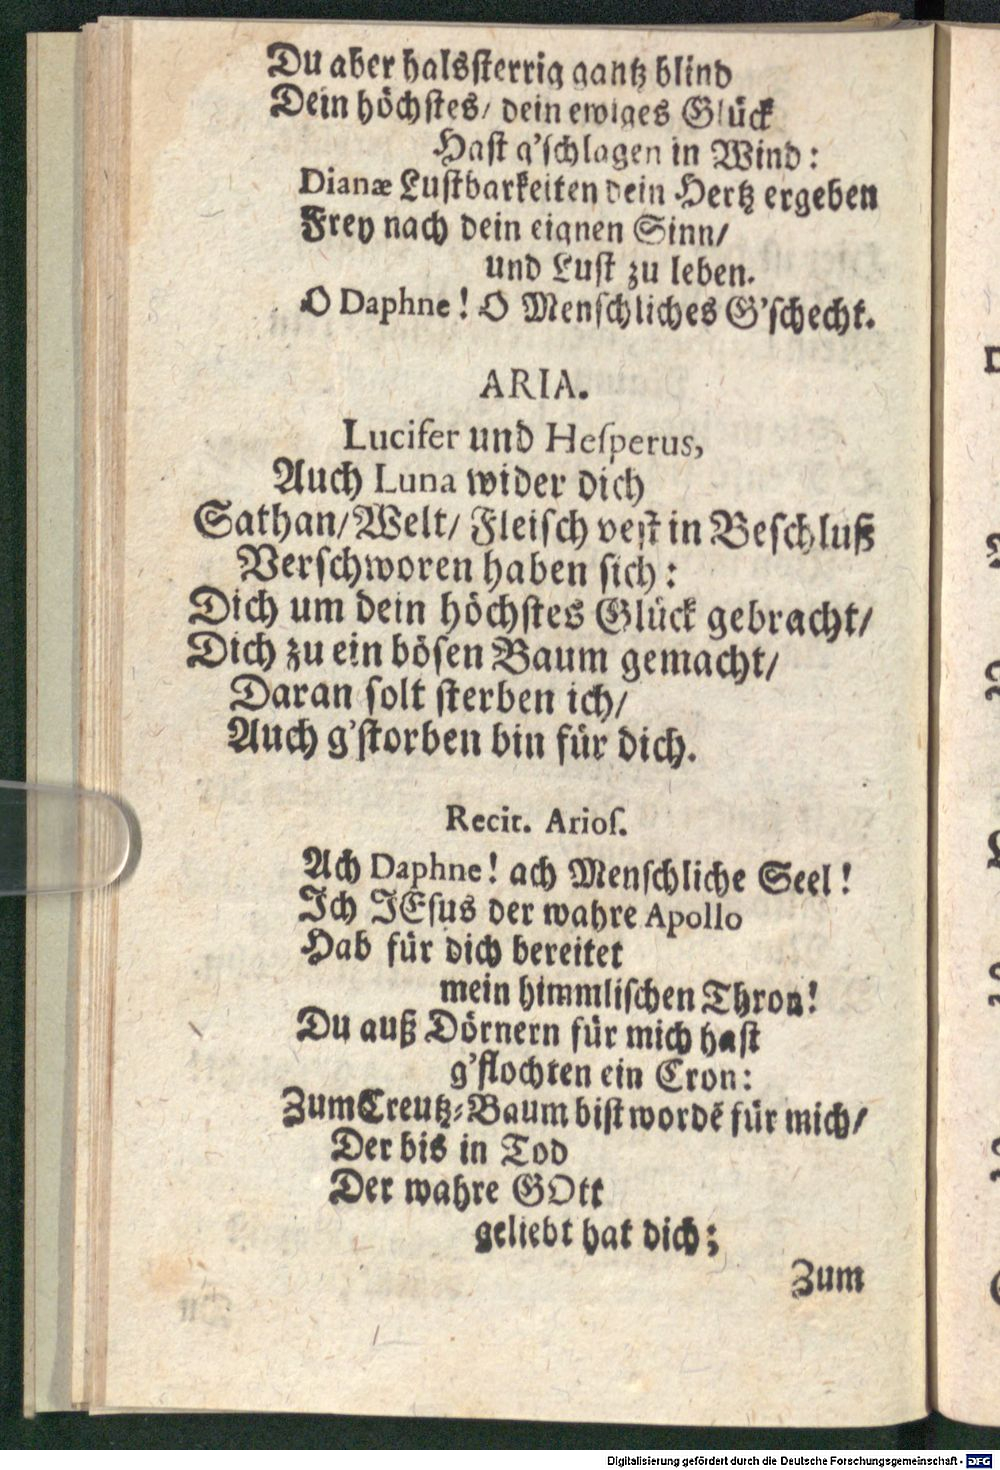 Du aber halsſterrig gantz blind
Dein höchſtes/ dein ewiges Glück
Haſt g'ſchlagen in Wind:
Dianæ Luſtbarkeiten dein Hertz ergeben
Frey nach dein eignen Sinn/
und Luſt zu leben.
O Daphne! O Menſchliches G'ſchecht.
ARIA.
Lucifer und Heſperus,
Auch Luna wider dich
Sathan/Welt/ Fleiſch veſt in Beſchluß
Verſchworen haben ſich:
Dich um dein höchſtes Glück gebracht/
Dich zu ein böſen Baum gemacht/
Daran ſolt ſterben ich/
Auch g'ſtorben bin für dich.
Recit. Arioſ.
Ach Daphne! ach Menſchliche Seel!
Ich JEſus der wahre Apollo
Hab für dich bereitet
mein himmliſchen Thron!
Du auß Dörnern für mich haſt
g'flochten ein Cron:
Zum Creutz-Baum biſt wordē für mich/
Der bis in Tod
Der wahre GOtt
geliebt hat dich;
Zum
Digitalisierung gefördert durch die Deutsche Forschungsgemeinschaft - DFG